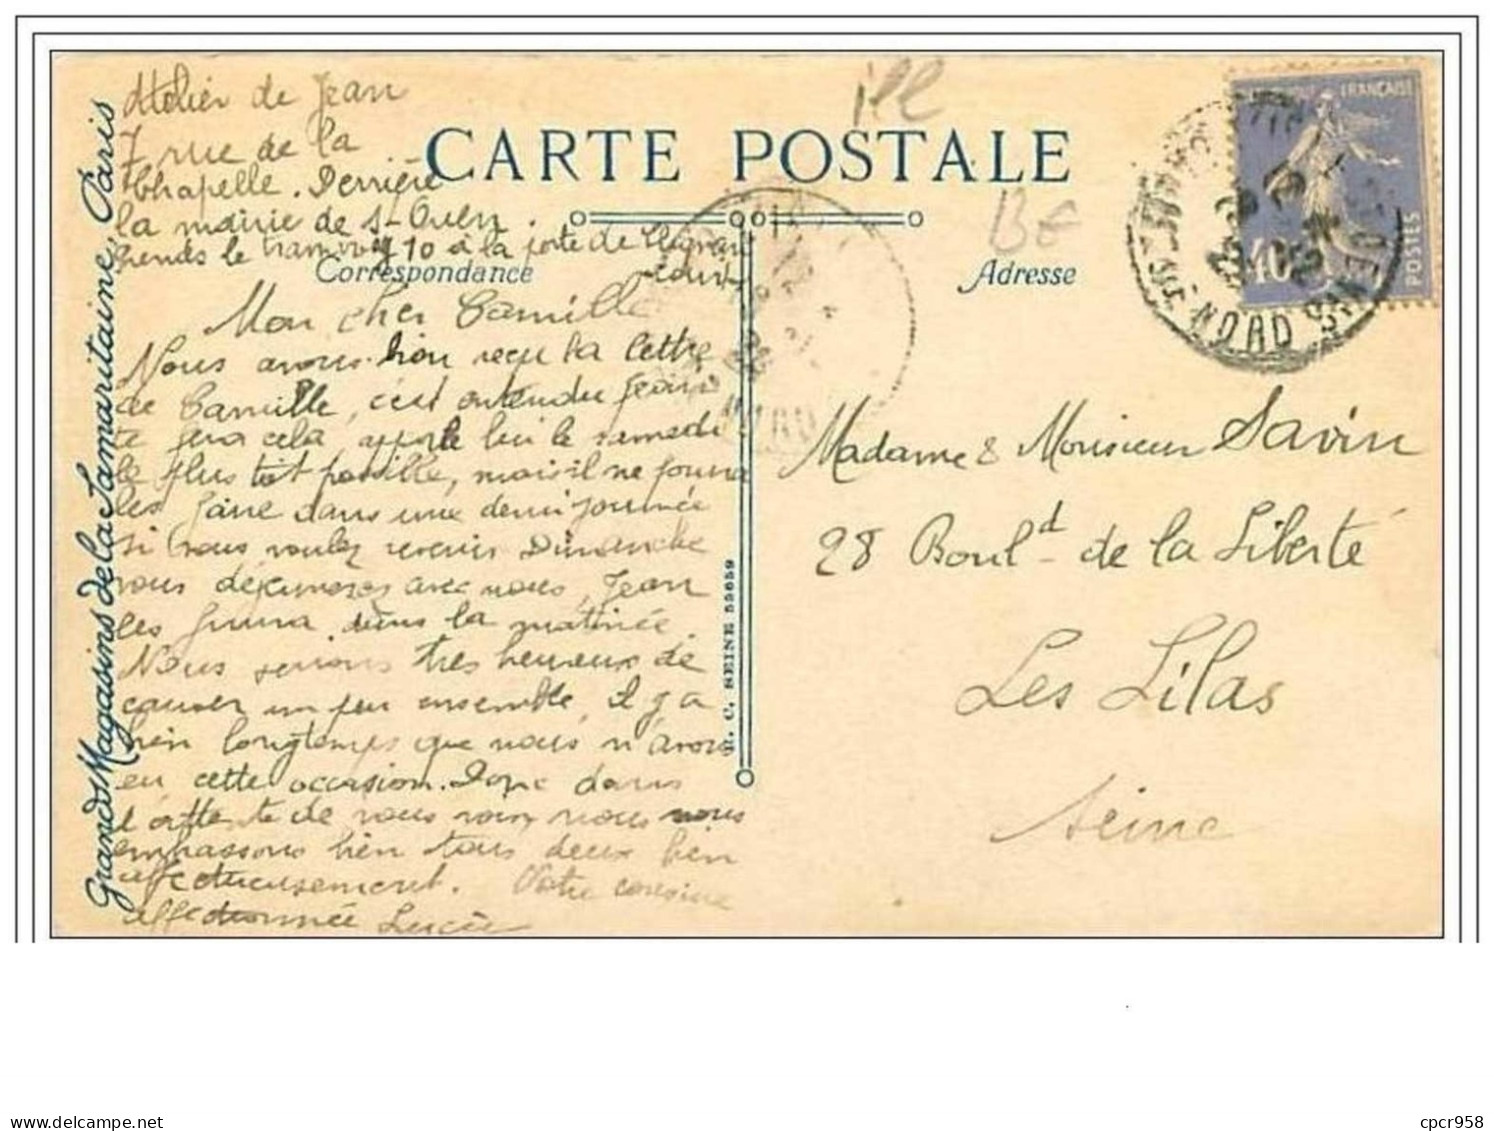 Atelier de Jean
7 rue de la
Chapelle. Derrière
la mairie de St-Ouen.
Prends le tramway 10 à la porte de Clignan
court
CARTE POSTALE
Correspondance
Adresse
Mon cher Camille
Nous avons bien reçu ta lettre
de Camille, c'est entendu Jean
te fera cela, apporte lui le samedi
le plus tôt possible, mais il ne pourra
les faire dans une demi journée
si vous voulez revenir Dimanche
vous déjeunerez avec nous, Jean
les finira dans la matinée.
Nous serions très heureux de
causer un peu ensemble, il y a
bien longtemps que nous n'avons
eu cette occasion. Donc dans
l'attente de vous voir nous vous
embrassons bien tous deux bien
affectueusement. Votre cousine
affectionnée Lucie
Grands Magasins de la Samaritaine, Paris
R. C. SEINE 55659
FRANÇAISE
40
POSTES
NORD
Madame & Monsieur Savin
28 Boul^d de la Liberté
Les Lilas
Seine
cpcr958